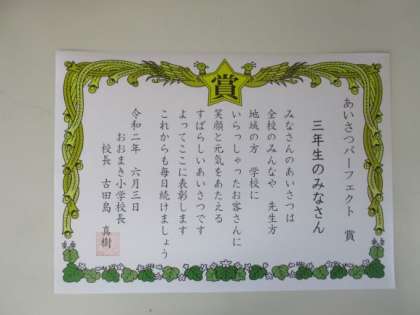 賞
あいさつパーフェクト 賞
三年生のみなさん
みなさんのあいさつは
全校のみんなや 先生方
地域の方 学校に
いらっしゃったお客さんに
笑顔と元気をあたえる
すばらしいあいさつです
よってここに表彰します
これからも毎日続けましょう
令和二年 六月三日
おおまき小学校長
校長 古田島 真樹